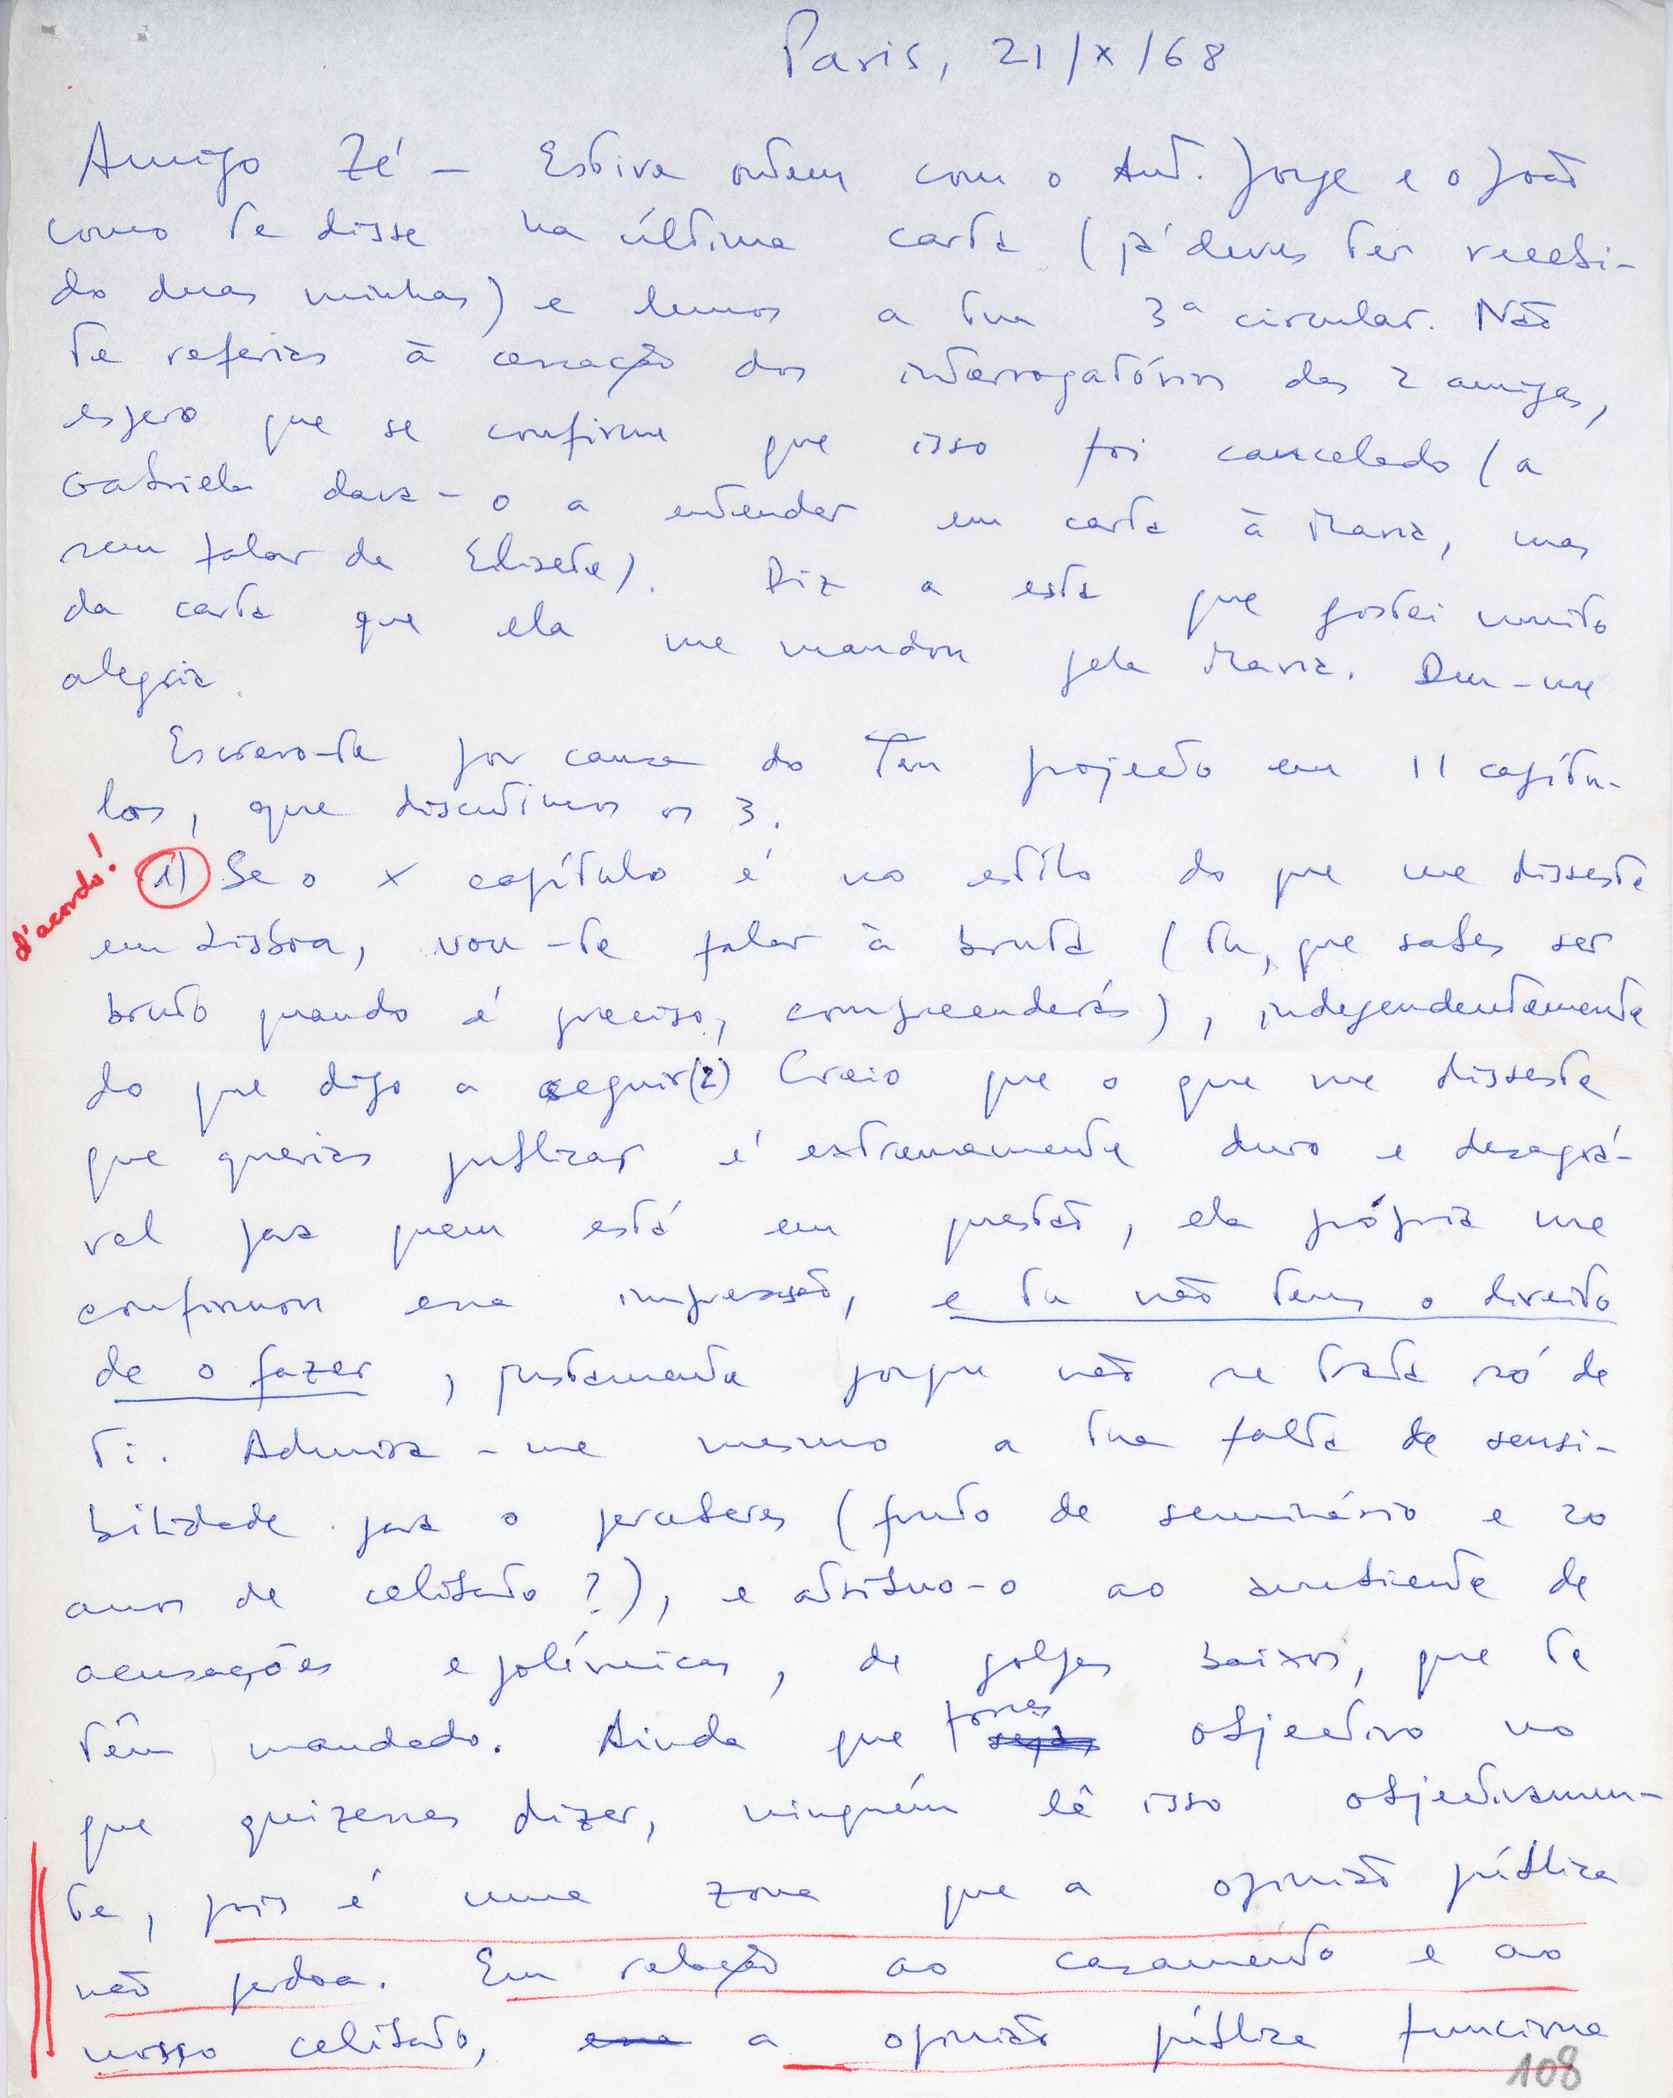 Paris, 21/X/68
Amigo Zé - Estive ontem com o Ant. Jorge e o João
como te disse na última carta (já deves ter recebi-
do duas minhas) e lemos a tua 3ª circular. Não
te referias à cessação dos interrogatórios das 2 amigas,
espero que se confirme que isso foi cancelado (a
Gabriela dava-o a entender em carta à Maria, mas
sem falar da Elisete). Diz a esta que gostei muito
da carta que ela me mandou pela Maria. Deu-me
alegria.
Escrevo-te por causa do teu projecto em 11 capítu-
los, que discutimos os 3.
d'acordo!
1) Se o X capítulo é no estilo do que me disseste
em Lisboa, vou-te falar à bruta (tu, que sabes ser
bruto quando é preciso, compreenderás), independentemente
do que digo a seguir (2) Creio que o que me disseste
que querias publicar é extremamente duro e desagrá-
vel para quem está em questão, ela própria me
confirmou essa impressão, e tu não tens o direito
de o fazer, justamente porque não se trata só de
ti. Admira-me mesmo a tua falta de sensi-
bilidade para o perceberes (fruto de seminário e 20
anos de celibato?), e atribuo-o ao ambiente de
acusações e polémicas, de golpes baixos, que te
têm mandado. Ainda que fosses objectivo no
que quizesses dizer, ninguém lê isso objectivamen-
te, pois é uma zona que a opinião pública
não perdoa. Em relação ao casamento e ao
nosso celibato, a opinião pública funciona
108